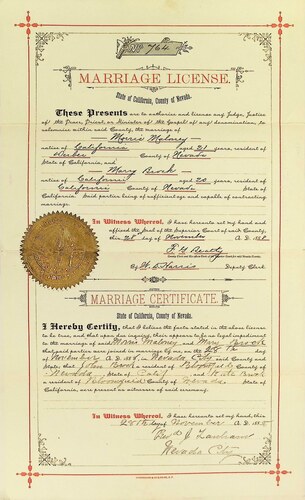 No 764
MARRIAGE LICENSE.
State of California, County of Nevada.
These Presents are to authorize and license any Judge, Justice
of the Peace, Priest, or Minister of the Gospel of any denomination, to
solemnize within said County, the marriage of
Morris Maloney
native of California aged 21 years, resident of
County of Nevada
State of California, and
Mary Brock
native of California aged 20 years, resident of
California County of Nevada State of
California. Said parties being of sufficient age and capable of contracting
marriage.
In Witness Whereof, I have hereunto set my hand and
affixed the Seal of the Superior Court of said County,
this 28 day of November A. D. 188
F. G. Beatty
By W. S. Harris Deputy Clerk
MARRIAGE CERTIFICATE.
State of California, County of Nevada.
I Hereby Certify, that I believe the facts stated in the above license
to be true, and that upon due inquiry, there appears to be no legal impediment
to the marriage of said Morris Maloney and Mary Brock
that said parties were joined in marriage by me, on the 28th day of
November A. D. 188 in Nevada City said County and State;
that John Brock a resident of County of
Nevada, State of and Kate Brock
a resident of Bloomfield County of Nevada, State of
California, are present as witnesses of said ceremony.
In Witness Whereof, I have hereunto set my hand, this
28th day of November A. D. 188
Rev J.
Nevada City